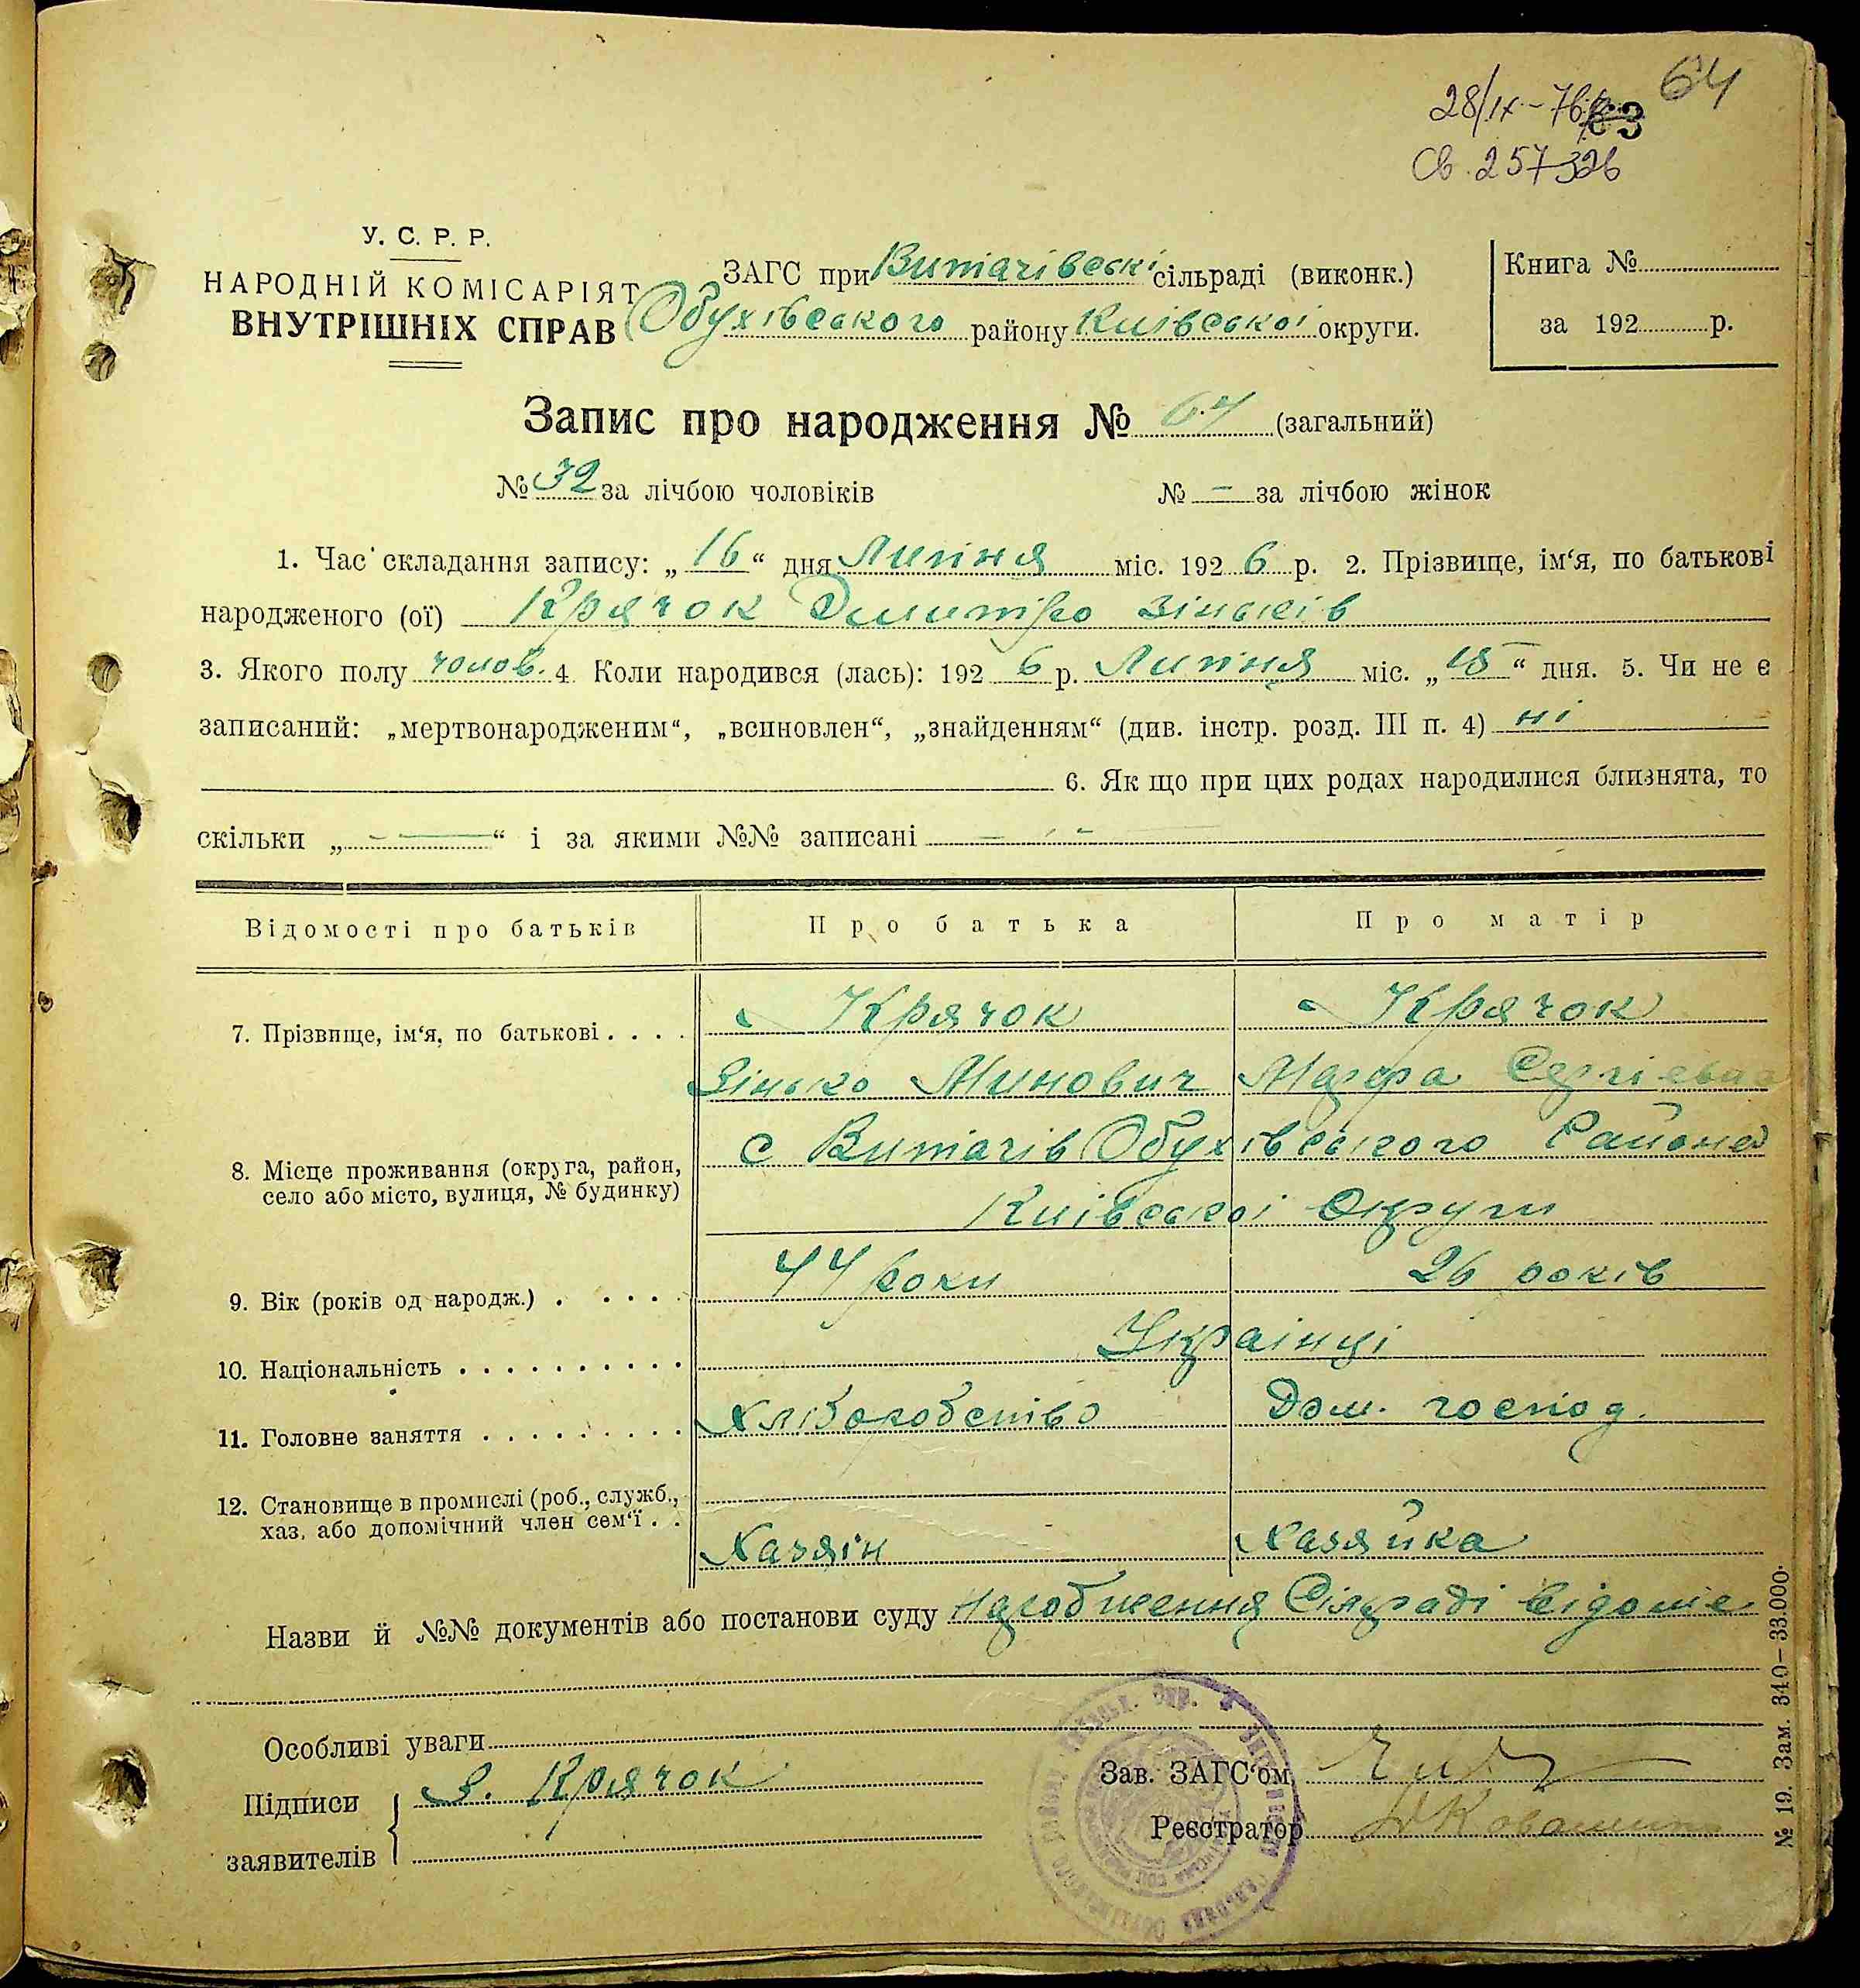 64
28/IX-76р. 63
Св. 257326
У. С. Р. Р.
НАРОДНІЙ КОМІСАРІЯТ
ВНУТРІШНІХ СПРАВ
ЗАГС при Витачівські сільраді (виконк.)
Обухівського району Київської округи.
Книга №
за 192 р.
Запис про народження № 64 (загальний)
№ 32 за лічбою чоловіків № – за лічбою жінок
1. Час складання запису: „16“ дня Липня міс. 1926 р. 2. Прізвище, ім‘я, по батькові
народженого (ої) Крячок Дмитро Зіньків
3. Якого полу чолов. 4. Коли народився (лась): 1926 р. Липня міс. „15“ дня. 5. Чи не є
записаний: „мертвонародженим“, „всиновлен“, „знайденням“ (див. інстр. розд. III п. 4) ні
6. Як що при цих родах народилися близнята, то
скільки „ — “ і за якими №№ записані —
Відомості про батьків Про батька Про матір
7. Прізвище, ім‘я, по батькові . . . . Крячок Крячок
Зінько Минович Марфа Сергіевна
8. Місце проживання (округа, район, село або місто, вулиця, № будинку) с Витачів Обухівського Района
Київської Округи
9. Вік (років од народж.) . . . . . 44 роки 26 років
10. Національність . . . . . . . . . . Українці
11. Головне заняття . . . . . . . . . Хліборобство Дом. господ.
12. Становище в промислі (роб., служб.,
хаз. або допомічний член сем‘ї . . Хазяін Хазяйка
Назви й №№ документів або постанови суду Народження Сілраді відоме
Особливі уваги
Підписи
заявителів
З. Крячок
Зав. ЗАГС‘ом
Реєстратор
№ 19. Зам. 340—33.000.